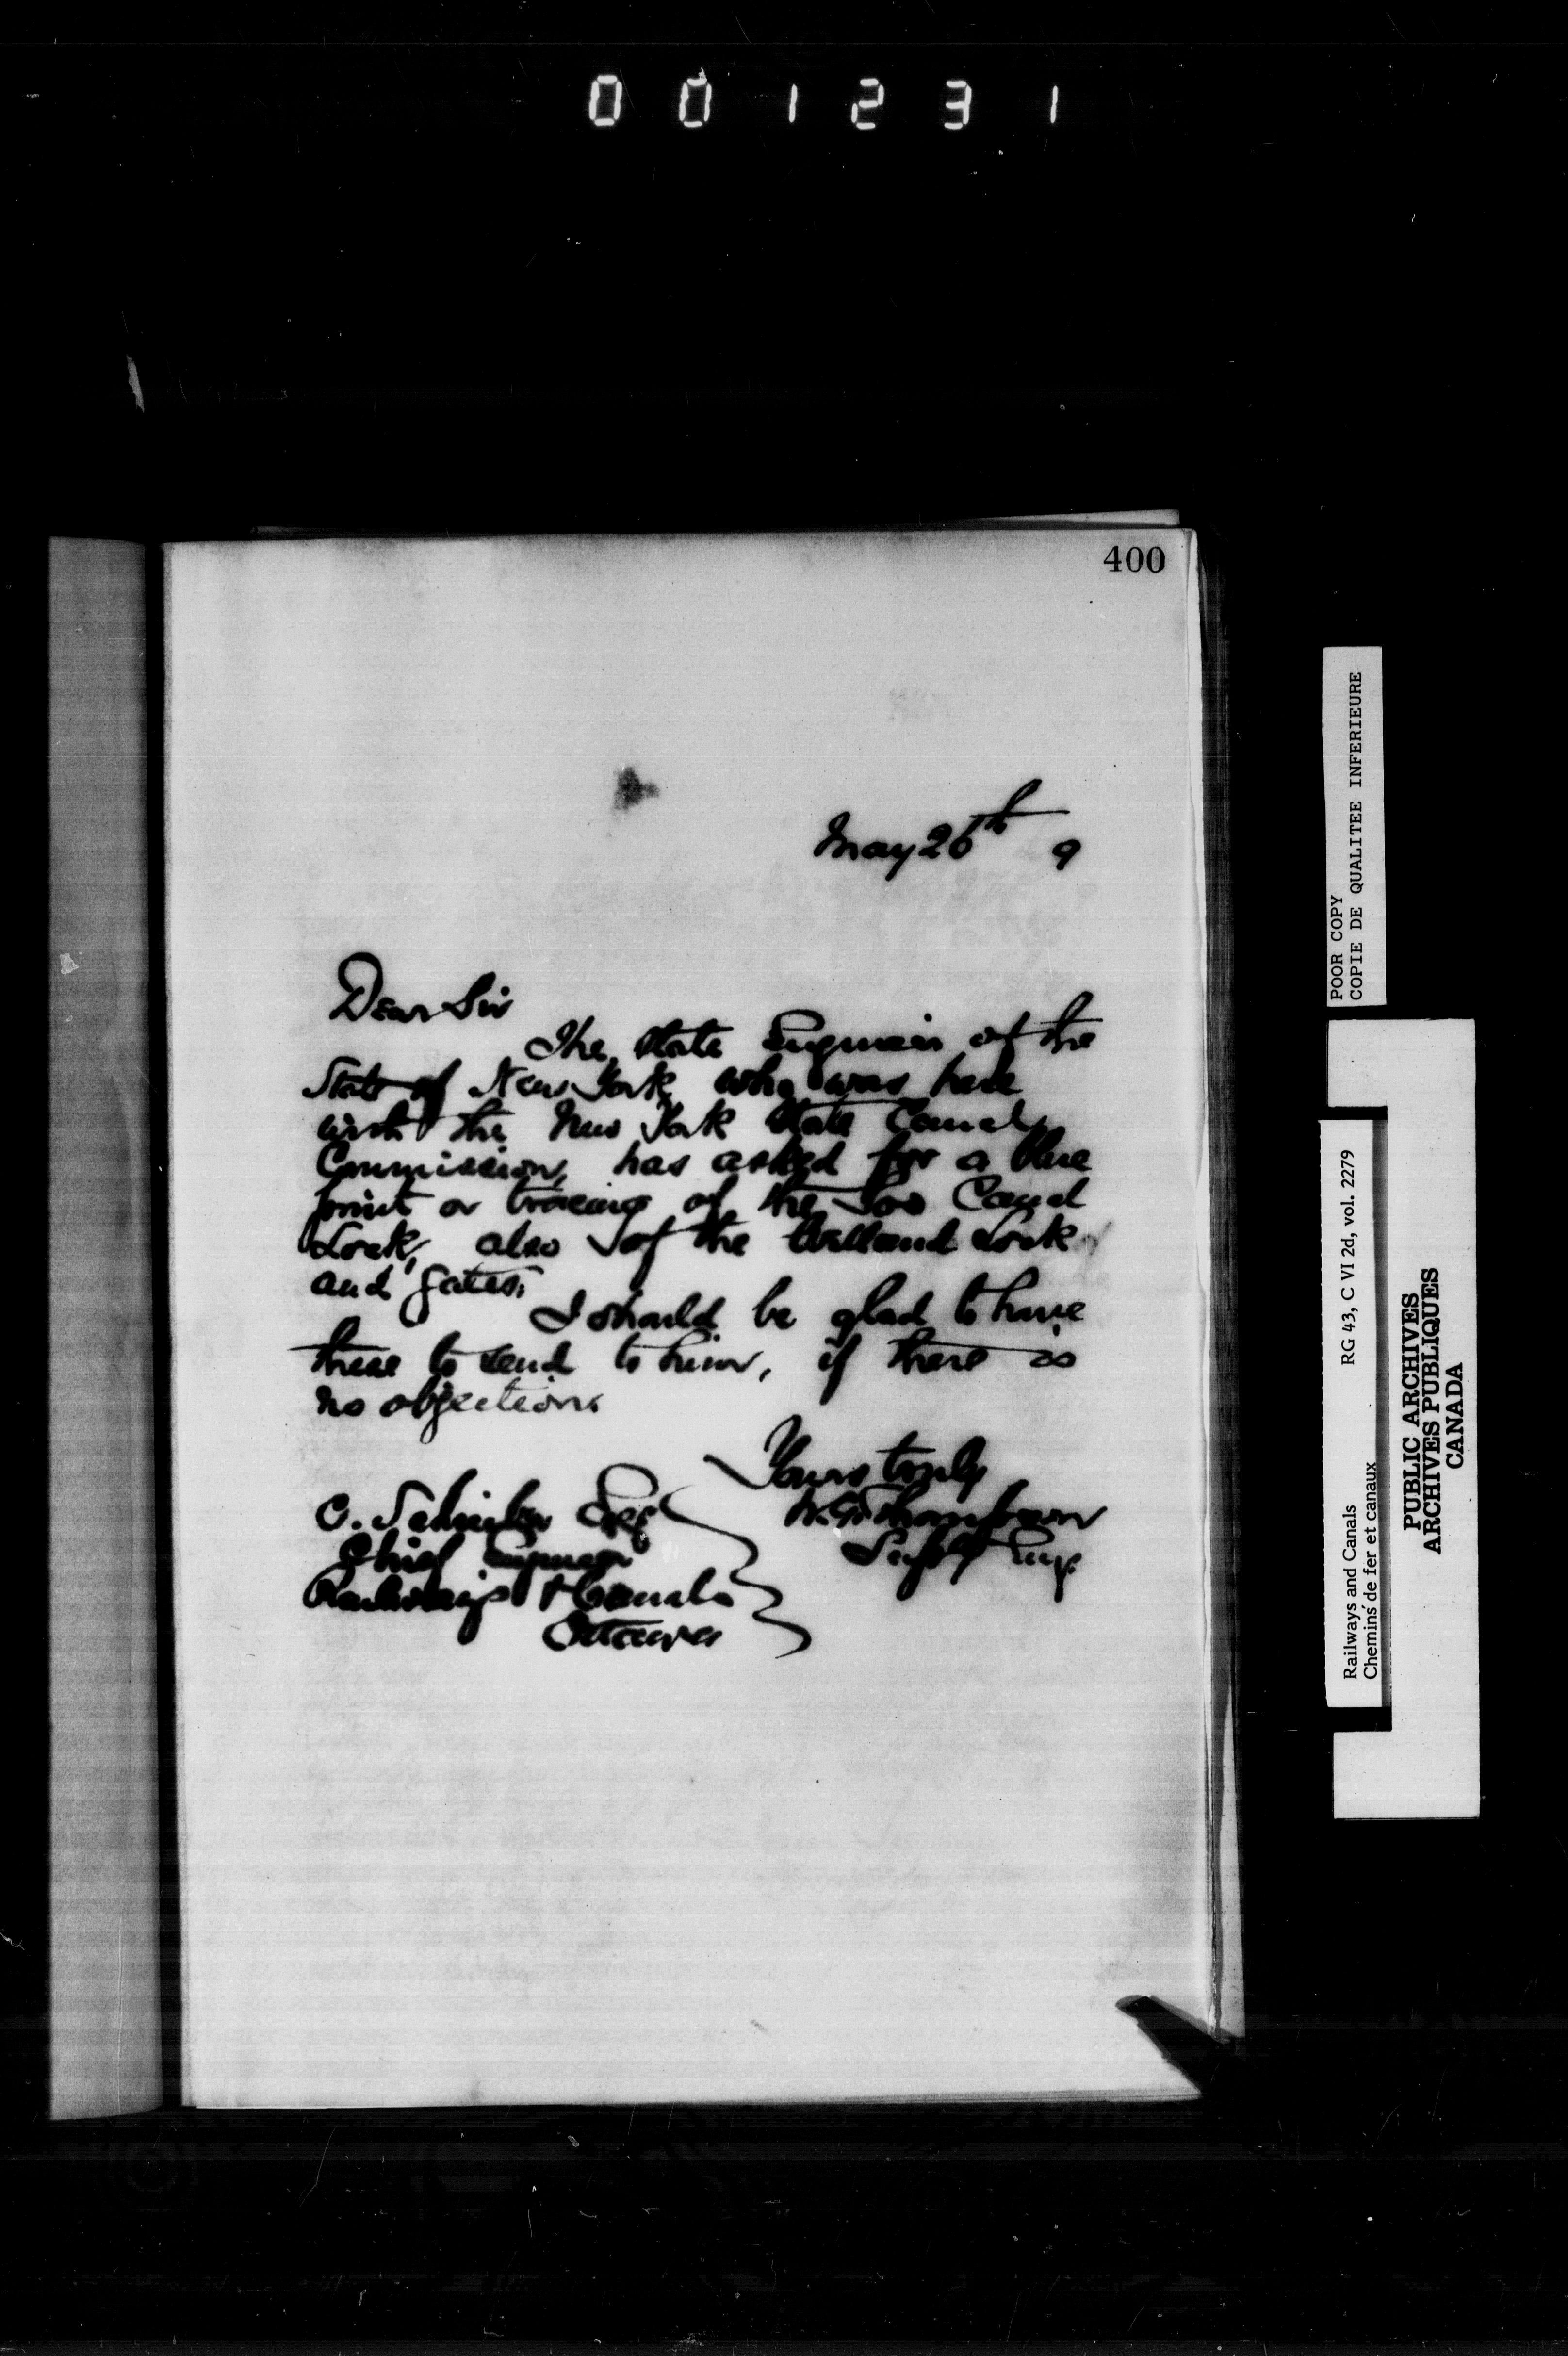 001231
400
May 26th 9
Dear Sir
The State Engineer of the
State of New York, who was here
with the New York State Canal
Commission, has asked for a blue
print or tracing of the Soo Canal
Lock, also of the Welland Lock
and gates.
I should be glad to have
these to send to him, if there is
no objection.
Yours truly
W.G. Thompson
Supt Eng.
C. Schreiber Esq
Chief Engineer
Railways & Canals
Ottawa
POOR COPY
COPIE DE QUALITEE INFERIEURE
Railways and Canals RG 43, C VI 2d, vol. 2279
Chemins de fer et canaux
PUBLIC ARCHIVES
ARCHIVES PUBLIQUES
CANADA